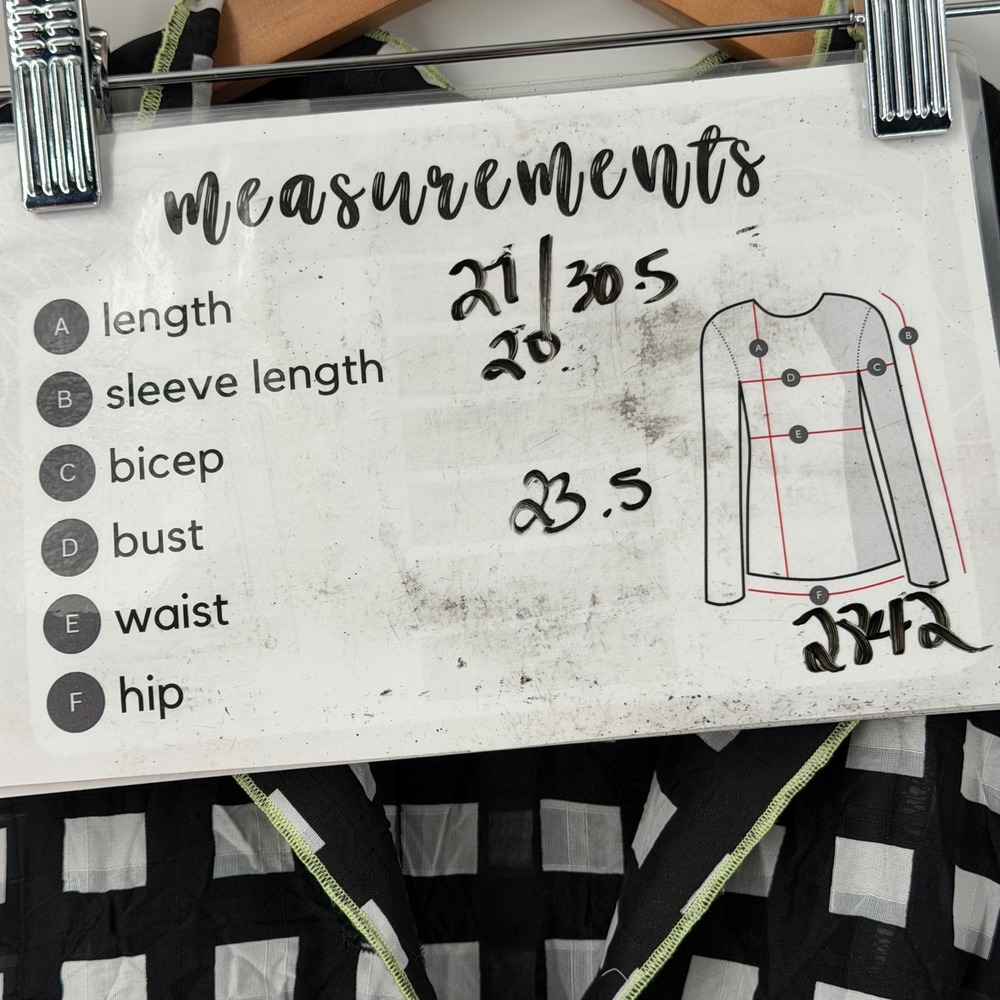 measurements
A length 27|30.5
B sleeve length 20
C bicep
D bust 23.5
E waist
F hip
A
B
C
D
E
F